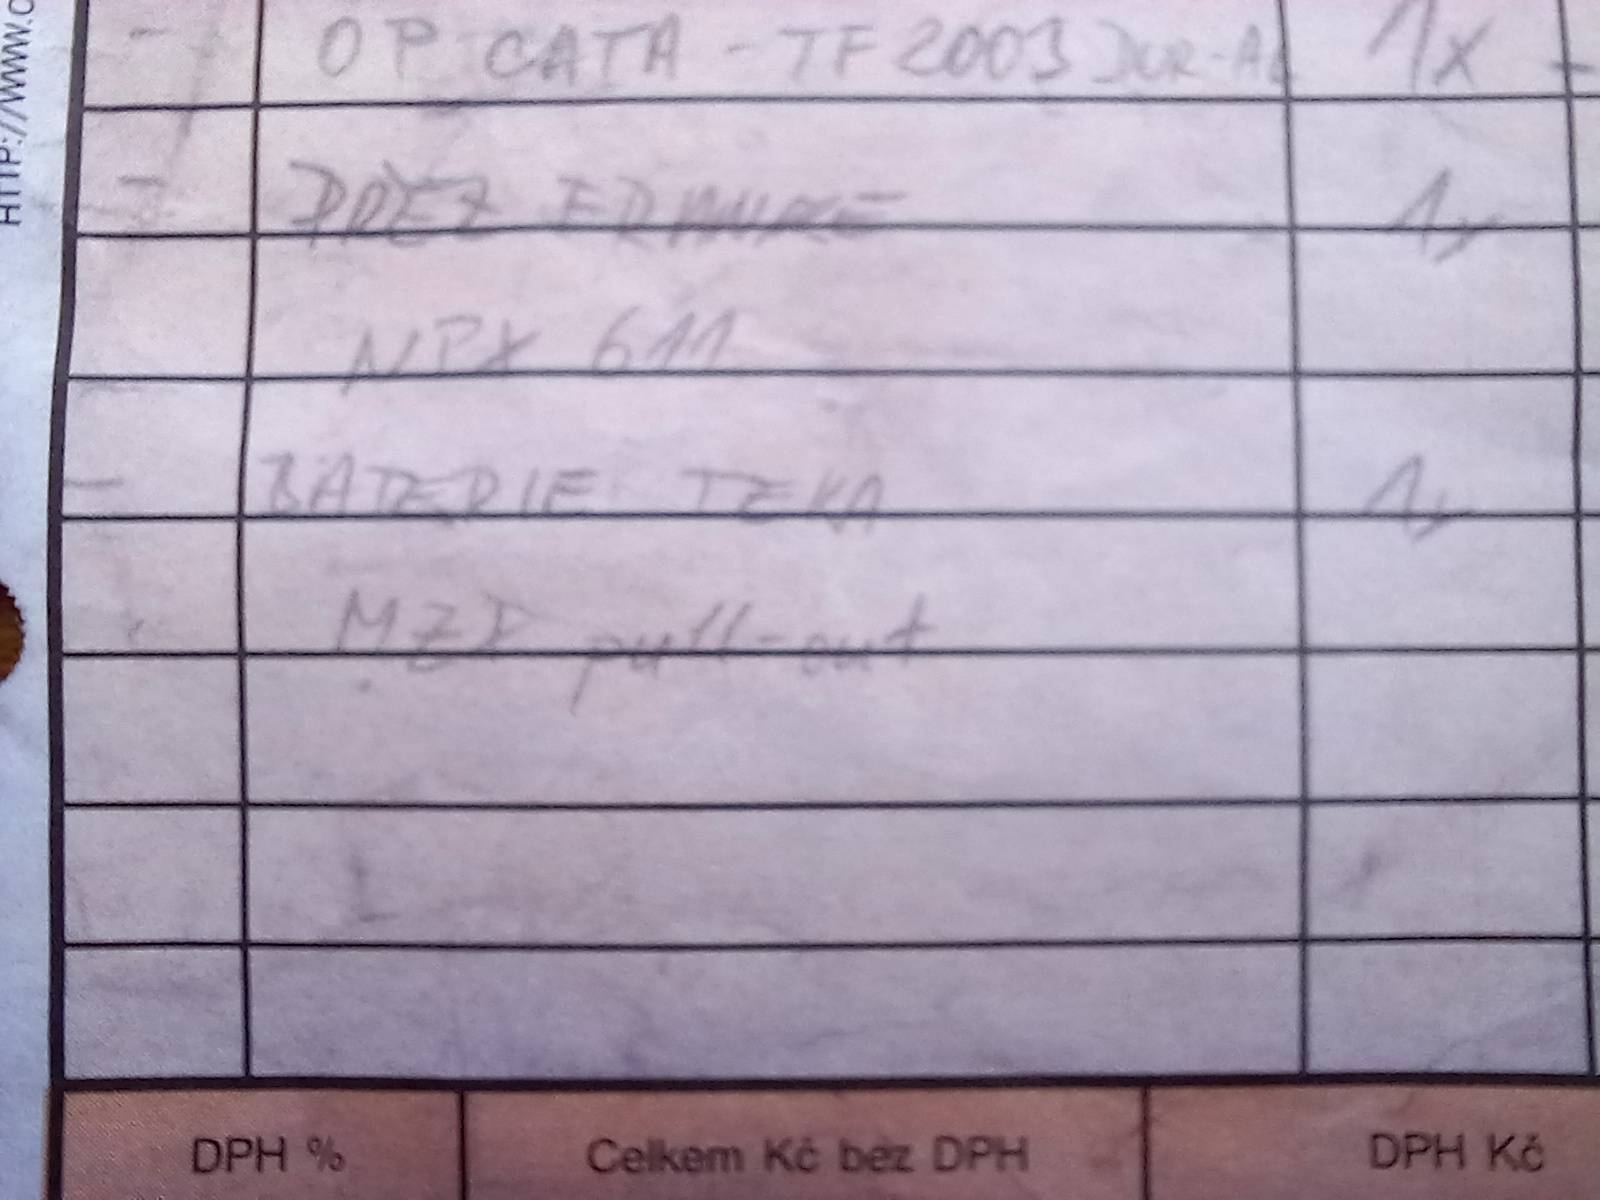 OP CATA - TF 2003 DUR-AL 1x -
- DŘEZ FRANKE 1x
NPX 611
- BATERIE TEKA 1x
MZX pull-out
DPH % Celkem Kč bez DPH DPH Kč
HTTP://WWW.